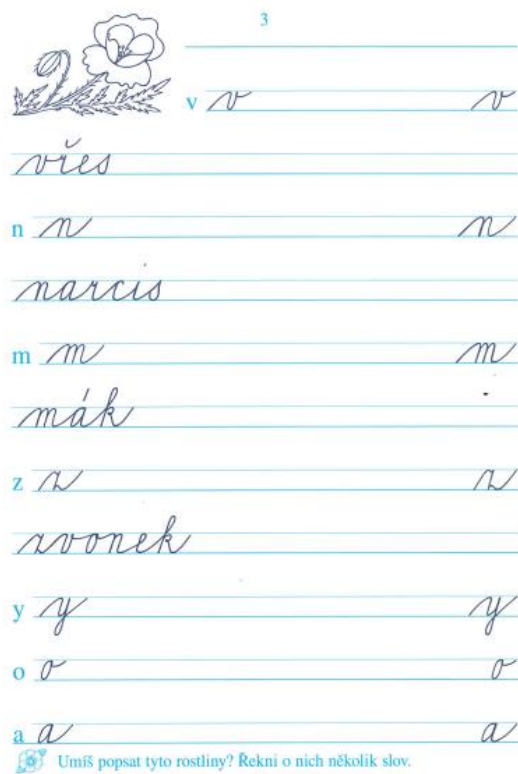 3
v v v
vřes
n n n
narcis
m m m
mák
z z z
zvonek
y y y
o o o
a a a
Umíš popsat tyto rostliny? Řekni o nich několik slov.